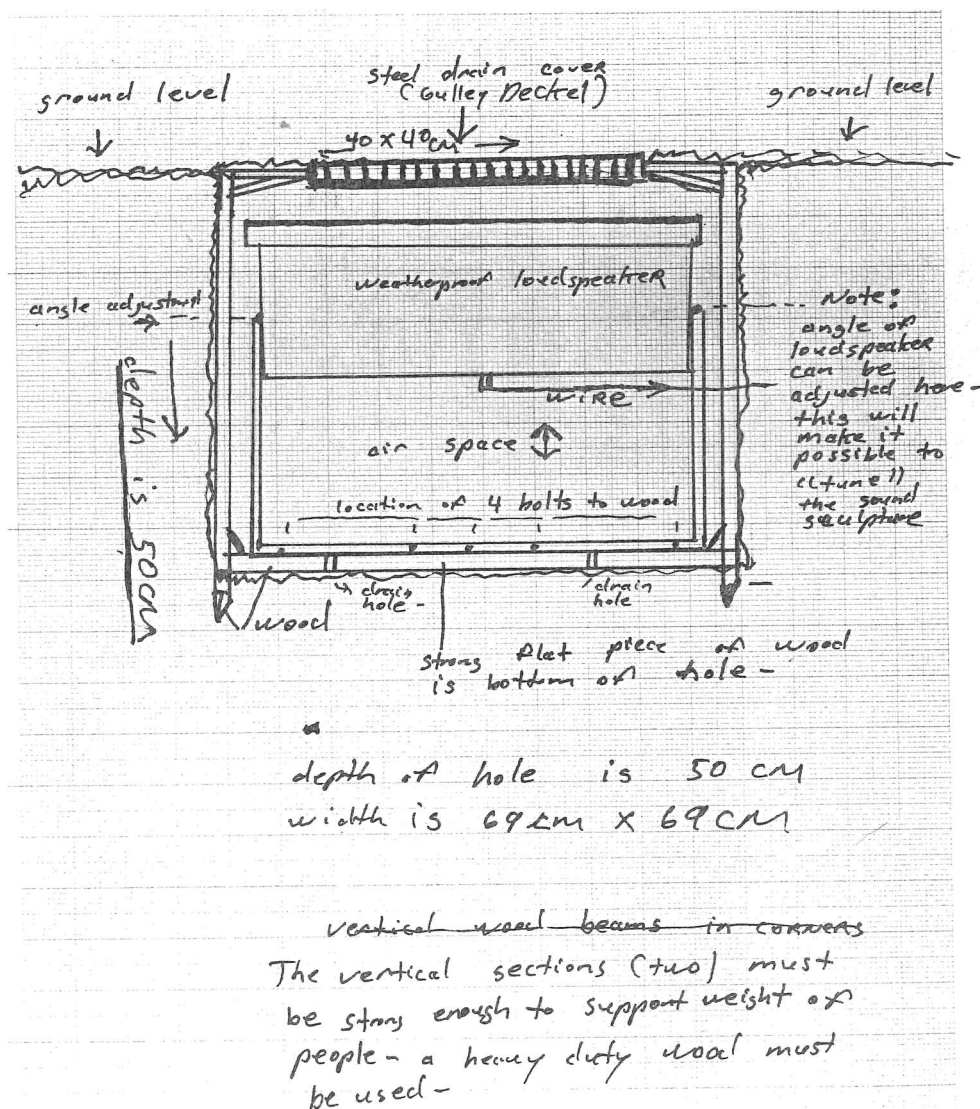 steel drain cover
(Gulley Deckel)
ground level
ground level
40 x 40cm
weatherproof loudspeaker
angle adjustment
Note:
angle of
loudspeaker
can be
adjusted here-
this will
make it
possible to
"tune"
the sound
sculpture
WIRE
depth is 50cm
air space
location of 4 bolts to wood
drain
hole-
drain
hole
wood
strong flat piece of wood
is bottom of hole-
depth of hole is 50 cm
width is 69cm x 69cm
vertical wood beams in corners
The vertical sections (two) must
be strong enough to support weight of
people- a heavy duty wood must
be used-